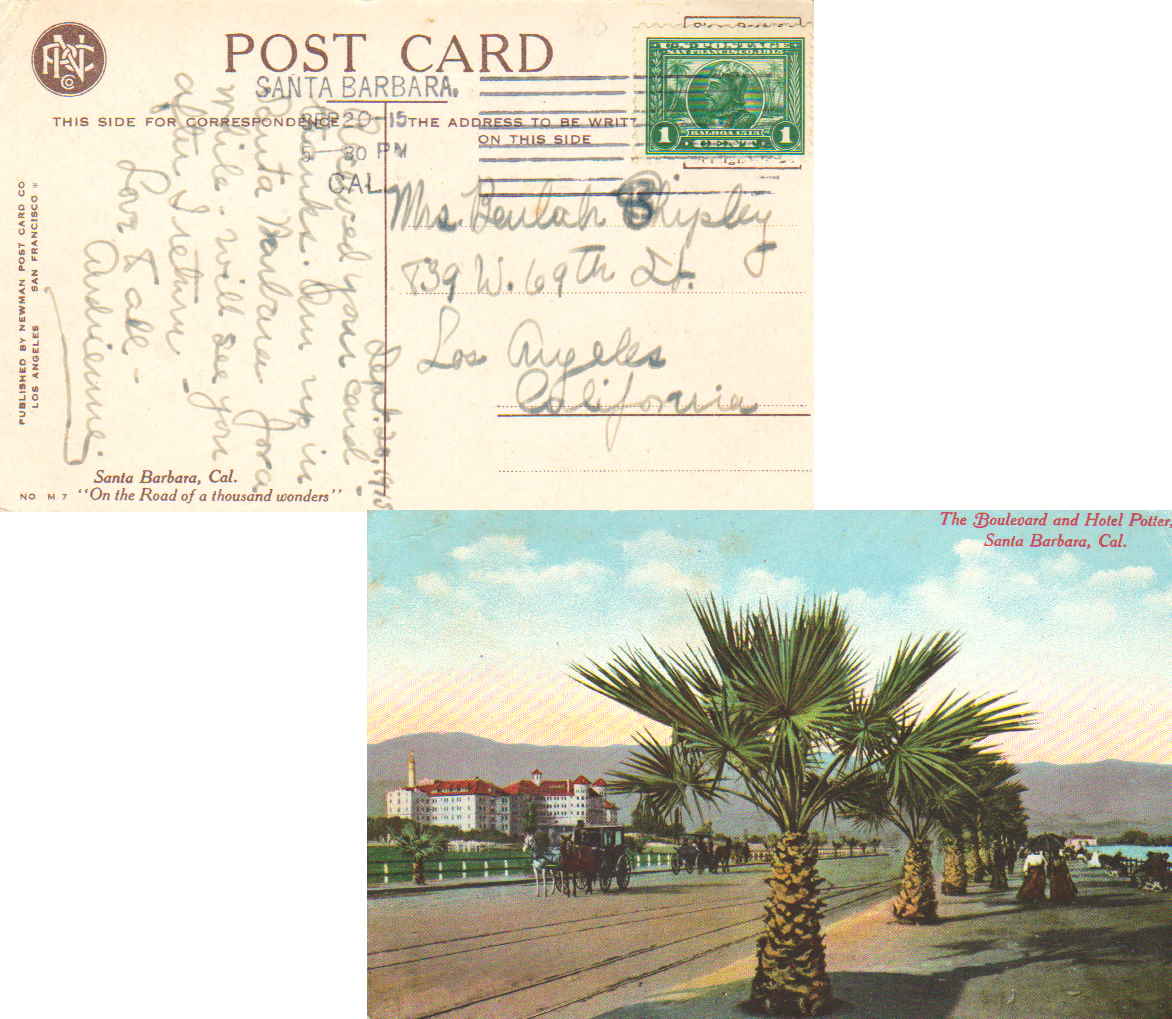 POST CARD
SANTA BARBARA.
20-15
30 PM
CAL.
THIS SIDE FOR CORRESPONDENCE
THE ADDRESS TO BE WRITT
ON THIS SIDE
U.S. POSTAGE
SAN FRANCISCO 1915
BALBOA 1513
1 CENT 1
Mrs. Beulah Shipley
839 W. 69th St.
Los Angeles
California
Sept. 20, 1915
Received your card.
Thanks. Am up in
Santa Barbara for a
while - will see you
after I return -
Love to all -
Ardienne.
PUBLISHED BY NEWMAN POST CARD CO
LOS ANGELES SAN FRANCISCO
Santa Barbara, Cal.
NO. M 7 "On the Road of a thousand wonders"
The Boulevard and Hotel Potter,
Santa Barbara, Cal.